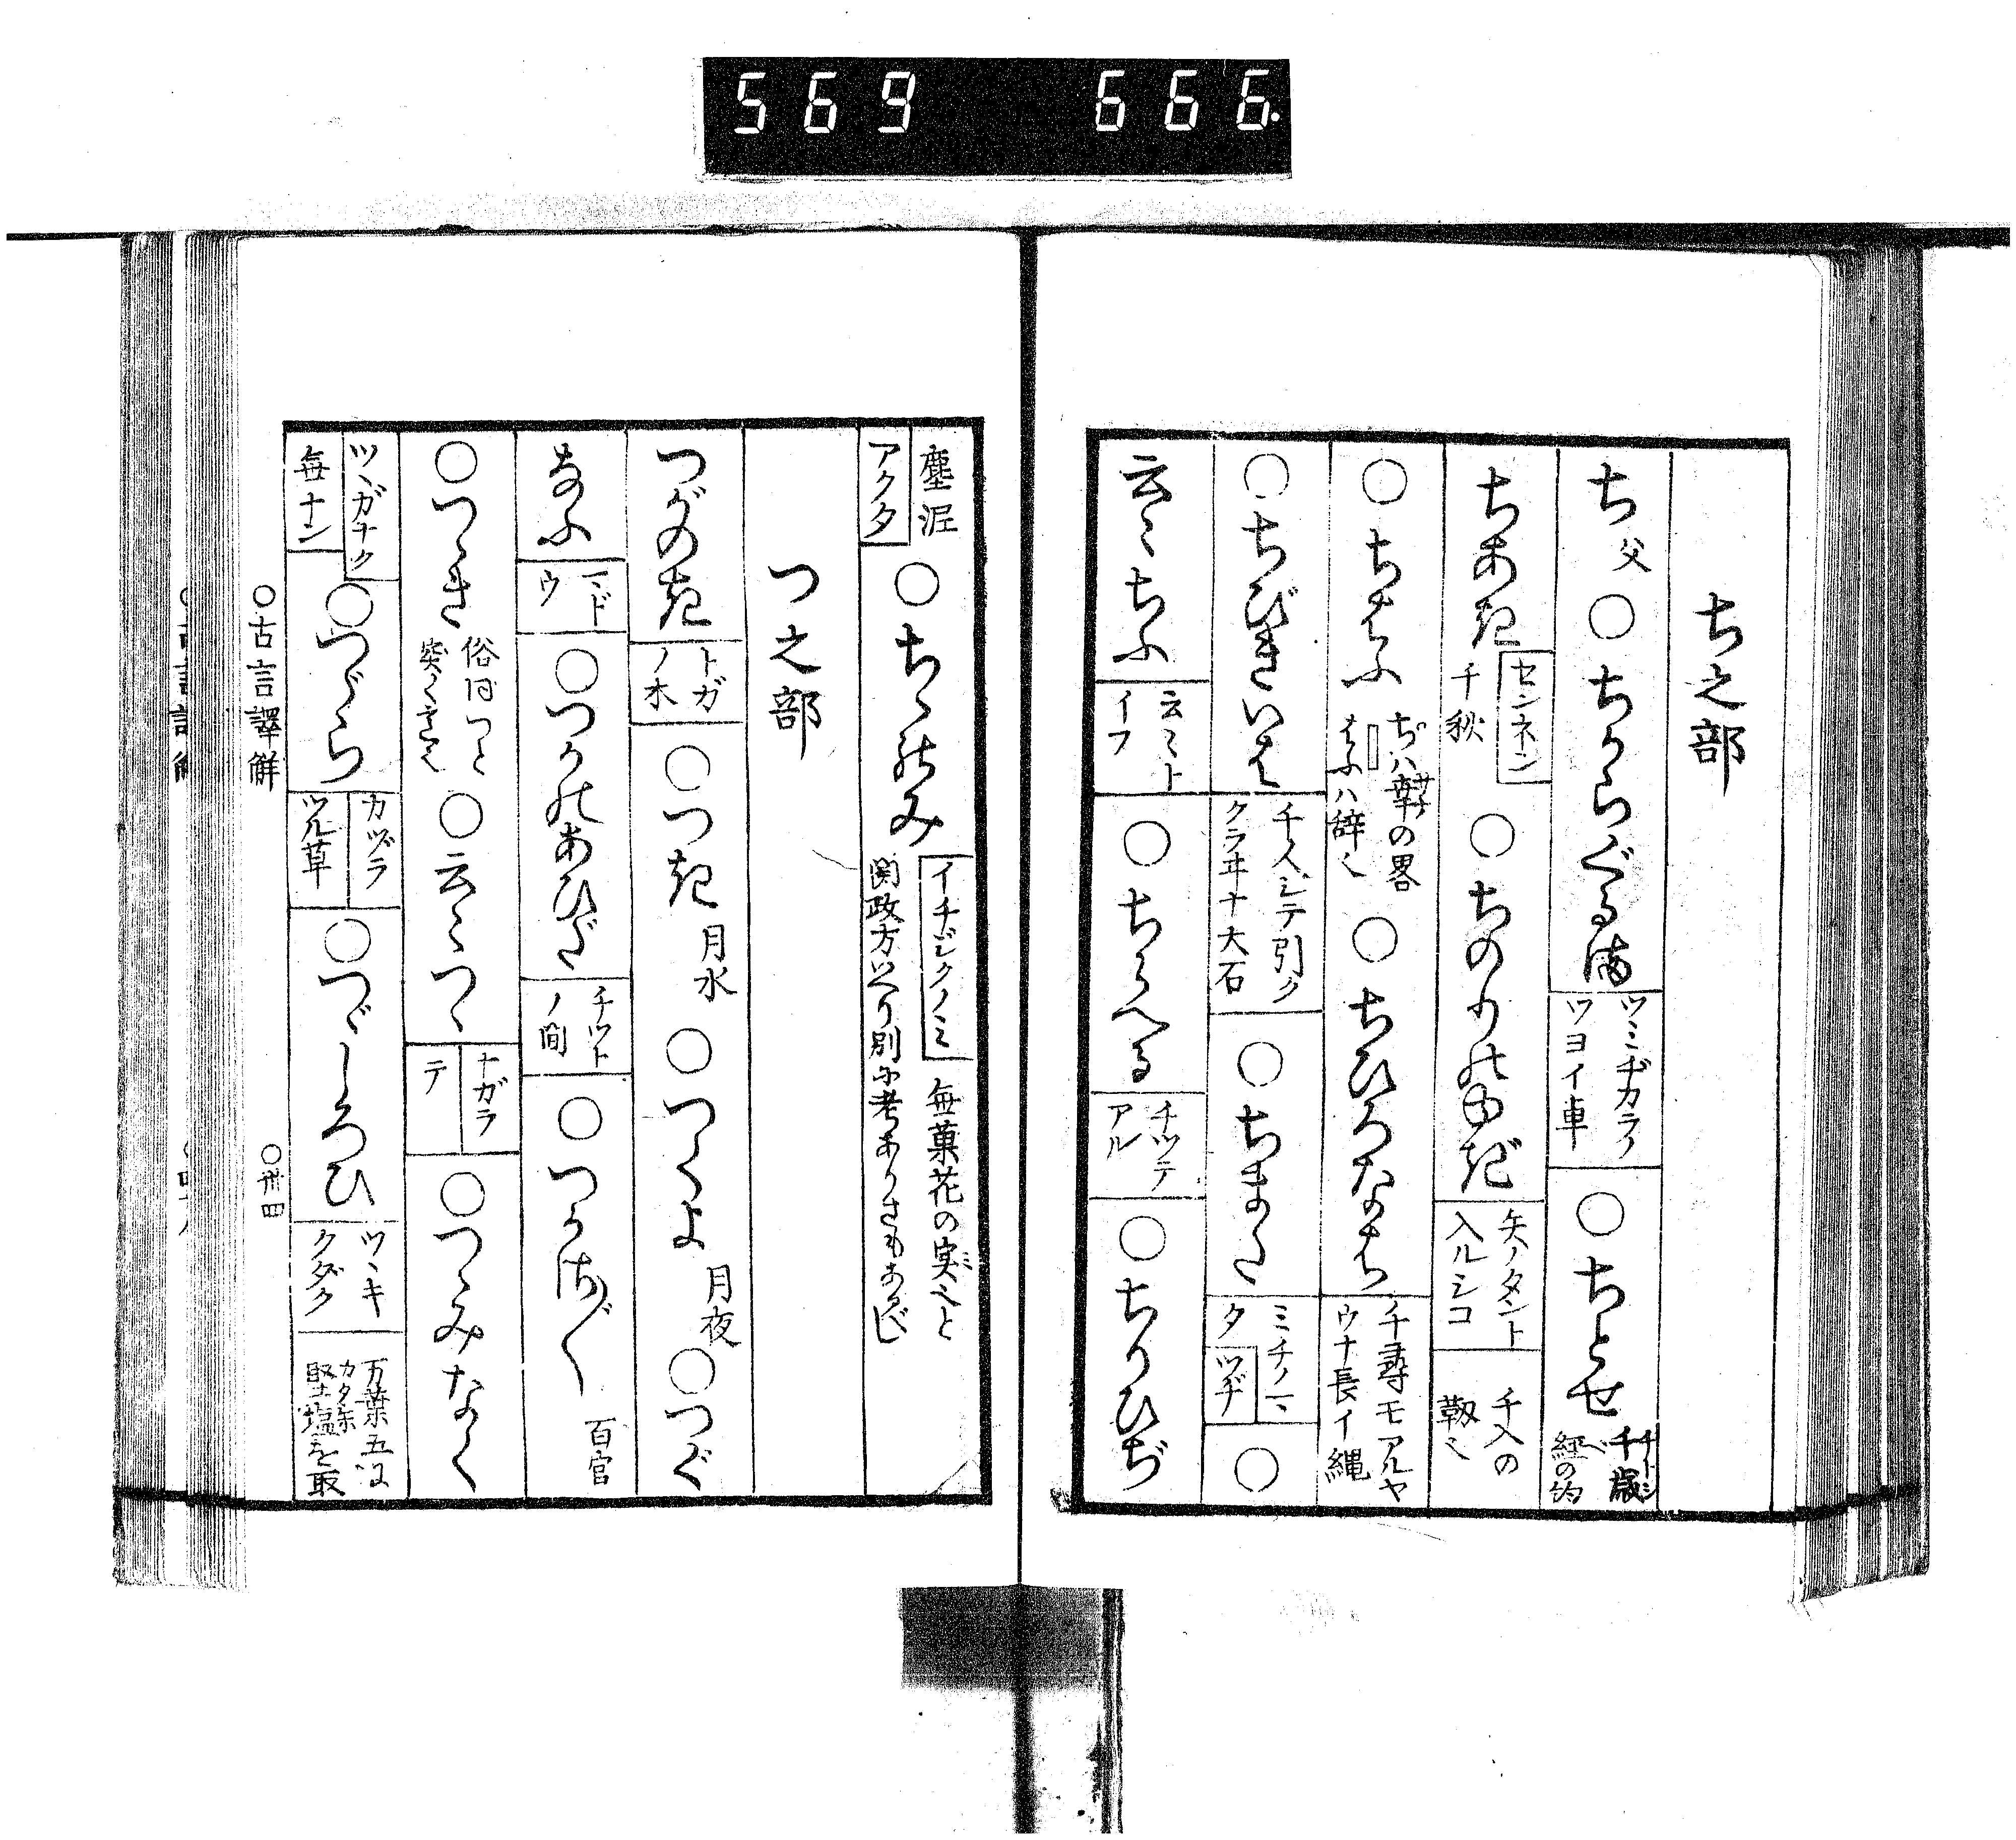 569 666
ち之部
ち 父 ○ちからぐるま ツミヂカラノツヨイ車 ○ちとせ 千歳 経の約
ちあき センネン 千秋 ○ちのりのゆき 矢ノタント入ルシコ 千入の靱也
○ちはふ ちハ幸の畧 はふハ辞也 ○ちひろなは 千尋モアルヤウナ長イ縄
○ちびきいは 千人シテ引ククラヰナ大石 ○ちまた ミチノマタ ツヂ ○
云〻ちふ 云〻トイフ ○ちらへる チツテアル ○ちりひぢ
塵泥 アクタ ○ちゝのみ イチヂクノミ 無菓花の実也と 関政方いへり別に考ありさもあるべし
つ之部
つがのき トガノ木 ○つき 月水 ○つくよ 月夜 ○つぐ
なふ マドウ ○つかのあひだ チツトノ間 ○つかさ〴〵 百官
○つゝき 俗ニつと突く意也 ○云〻つゝ ナガラ テ ○つゝみなく
ツヽガナク 無ナン ○つゞら カヅラ ツル草 ○つゞしろひ ツヽキクダク 万葉五に 堅塩を取
○古言譯解 ○卅四